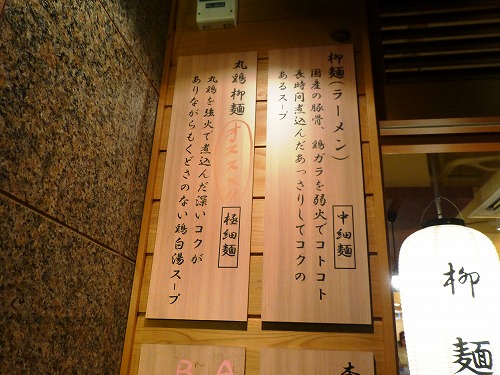 柳麺(ラーメン)
国産の豚骨、鶏ガラを弱火でコトコト
長時間煮込んだあっさりしてコクの
あるスープ
中細麺
丸鶏柳麺
オススメ
丸鶏を強火で煮込んだ深いコクが
ありながらもくどさのない鶏白湯スープ
極細麺
柳麺
BA